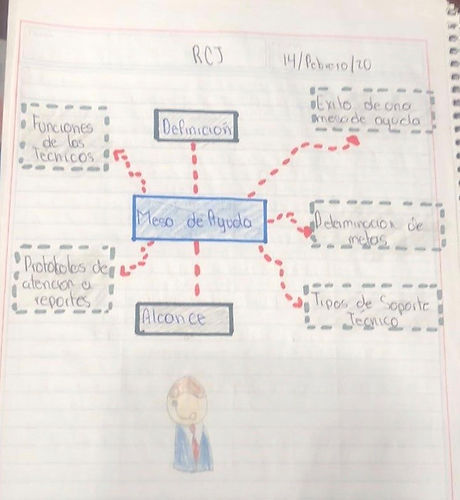 RCJ
14/febrero/20
Funciones
de los
Tecnicos
Definición
Exito de una
mesa de ayuda
Mesa de Ayuda
Delaminacion de
metas
Protokoles de
atencion a
reportes
Alcance
Tipos de Soporte
Técnico